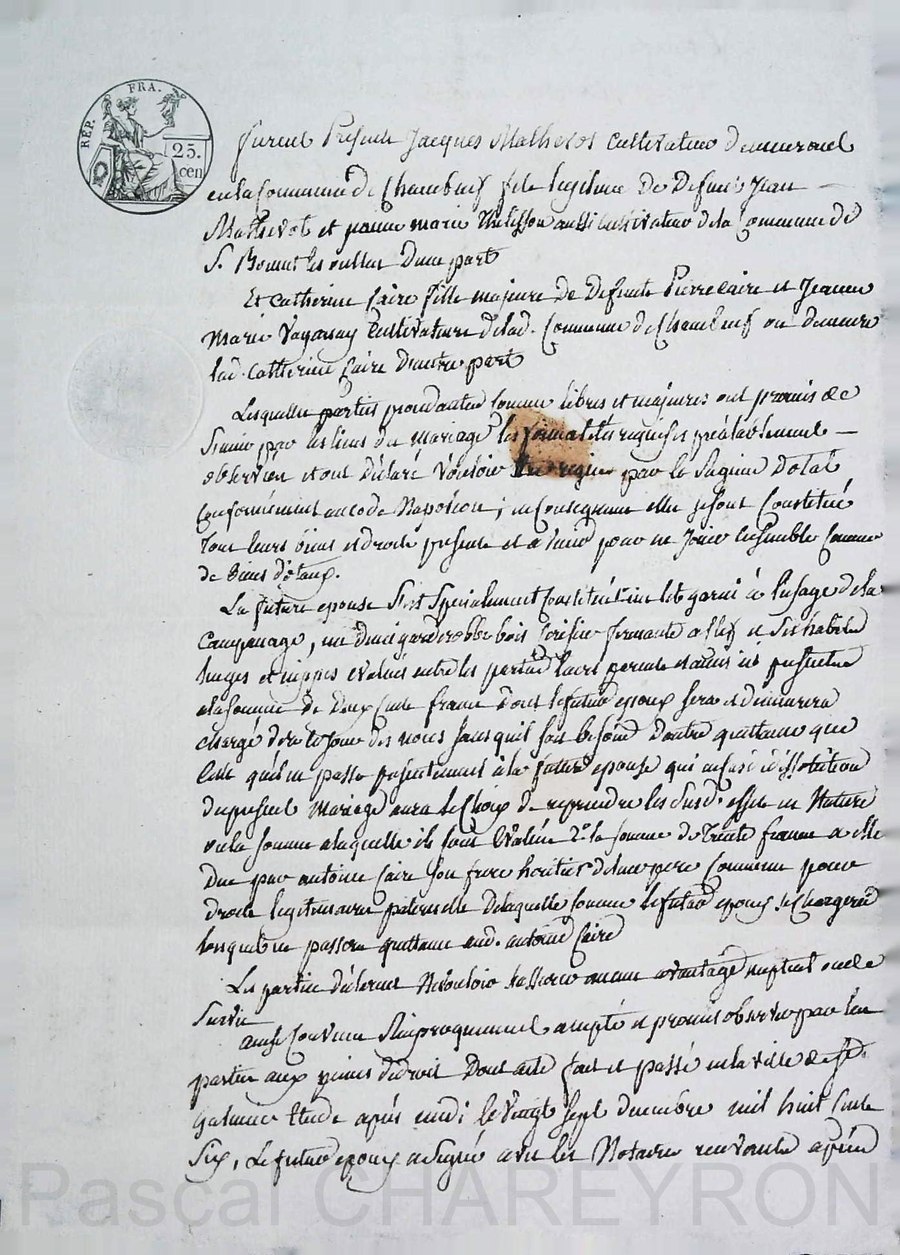 REP. FRA.
25. cen
furent Présents Jacques Mathevot Cultivateur demeurant
en la Commune de Chambeuf fils legitime de Defunt Jean
Mathevot et jeanne marie aussi cultivateur de la Commune de
St. Bonnet les oulles Dune part
Et Catherine Caire fille majeure de Defunts Pierre Caire et Jeanne
Marie Cultivature de lad. Commune de Chambeuf ou Demeure
lad. Catherine Caire Dautre part
Lesquelles parties procedantes Comme libres et majeures ont promis de
Sunir par les liens du mariage les formalités requises préalablement
observées et ont declaré vouloir par le Regime Dotal
Conformément au code Napoleon ; en Consequence elles se sont Constitué
tout leurs biens et droits presents et a venir pour en Jouir ensemble Comme
de biens dotaux.
La future epouse S'est Specialement Constitué un lit garni à l'usage de la
Campagne, un demi garderobbe bois cerisier fermante a clef et Ses habits
linges et nippes evalués entre les parties leurs parents et amis
a la somme de Deux Cents francs Dont le futur epoux sera et demeurera
chargé dors le Jour des noces sans quil soit besoin Dautre quittance que
Celle quil en passe presentement à la future epouse qui en cas de dissolution
du present Mariage aura le Choix de reprendre les susd. effets en Nature
ou la somme a laquelle ils sont Evalués 2°. la somme de Trente francs a elle
Due par antoine Caire son frere heritier de leur pere Commun pour
droits legitimaires paternelle de laquelle somme le futur epoux se Chargera
lorsquil en passera quittance aud. antoine Caire
Les parties declarent Ne vouloir se faire aucun avantage nuptial ou de
Survie
ainsi Convenu Reciproquement accepté et promis observer par les
parties aux peines de droit Dont acte fait et passé en la ville de St.
Galmier Etude après midi le vingt sept decembre mil huit cent
Six, Le futur epoux a Signé avec les Notaires
Pascal CHAREYRON